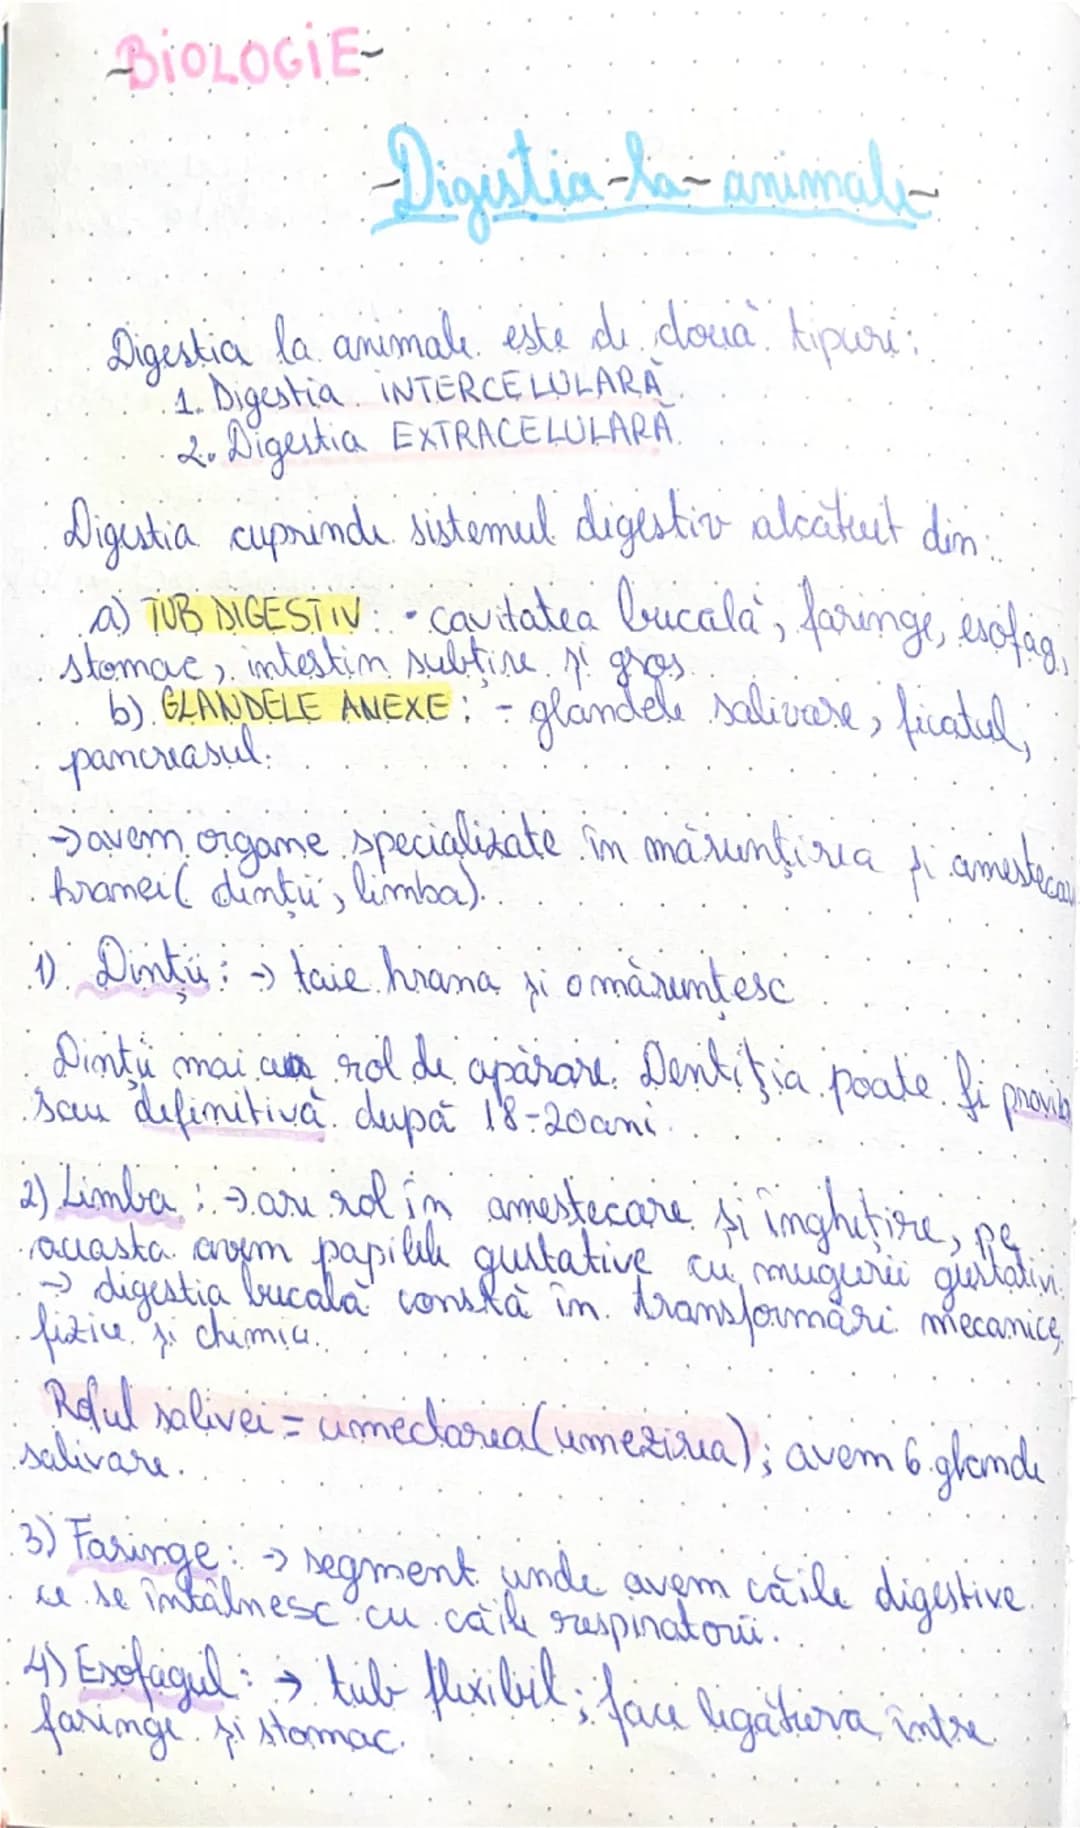 ~BIOLOGIE~
-Digestia-la-animale-
Digestia la animale este de două tipuri:
1. Digestia INTERCELULARĂ
2. Digestia EXTRACELULARĂ
Digestia cuprinde sistemul digestiv alcătuit din:
a) TUB DIGESTIV: - cavitatea bucală, faringe, esofag,
stomac, intestin subțire și gros
b) GLANDELE ANEXE: - glandele salivare, ficatul,
pancreasul.
→ avem organe specializate în mărunțirea și amestecar
hranei (dinții, limba).
1) Dinții: → taie hrana și o mărunțesc
Dinții mai au rol de apărare. Dentiția poate fi proviz
sau definitivă după 18-20 ani.
2) Limba: → are rol în amestecare și înghițire, pe
aceasta avem papilele gustative cu mugurii gustativi.
→ digestia bucală constă în transformări mecanice,
fizice și chimice.
Rolul salivei = umectarea (umezirea); avem 6 glande
salivare.
3) Faringe: → segment unde avem căile digestive
ce se întâlnesc cu căile respiratorii.
4) Esofagul: → tub flexibil; face legătura între
faringe și stomac.